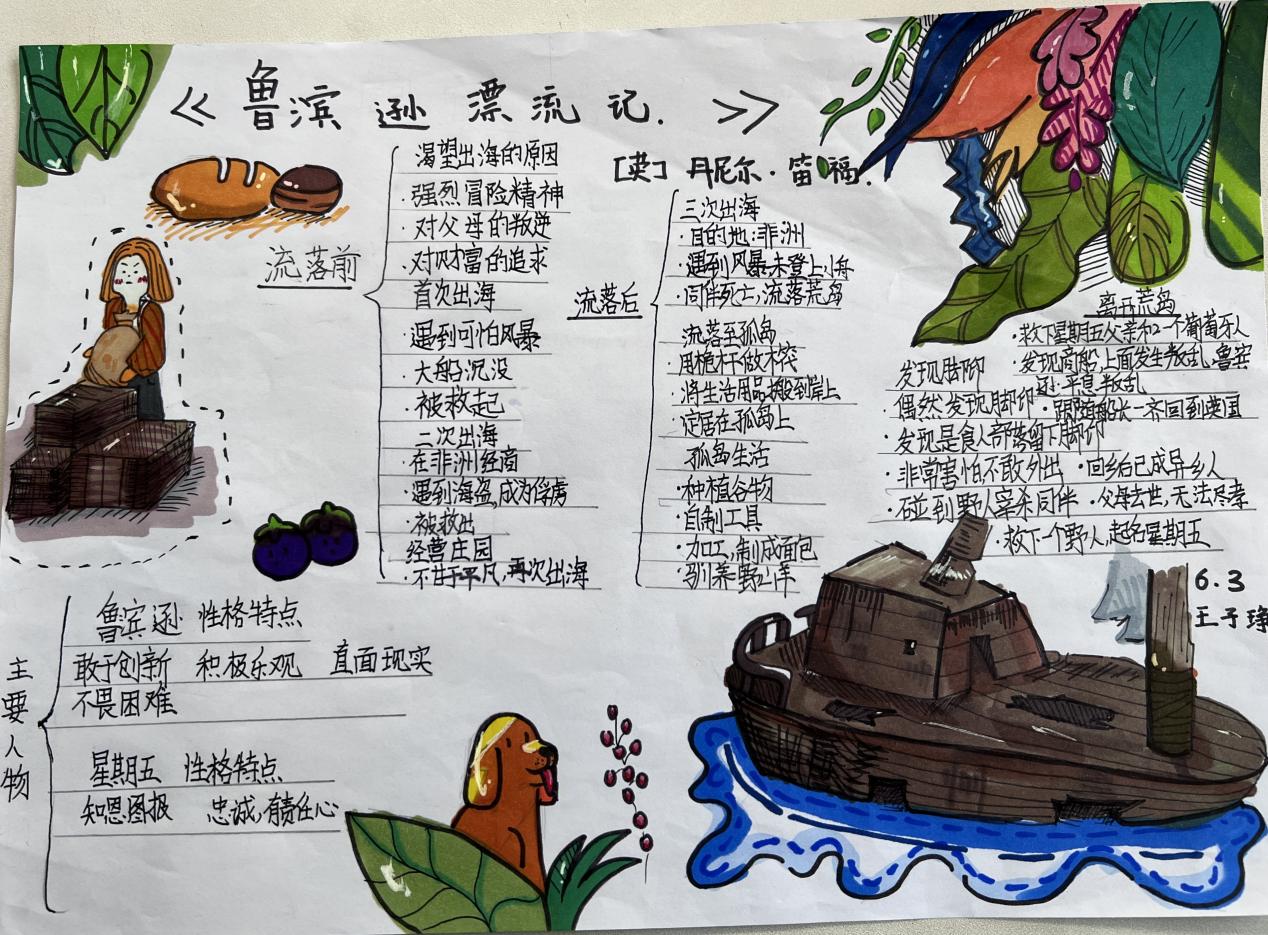 《鲁滨逊漂流记.》
[英]丹尼尔·笛福.
流落前
渴望出海的原因
·强烈冒险精神
·对父母的叛逆
·对财富的追求
首次出海
·遇到可怕风暴
·大船沉没
·被救起
二次出海
·在非洲经商
·遇到海盗,成为俘虏
·被救出
经营庄园
·不甘于平凡,再次出海
流落后
三次出海
·目的地:非洲
·遇到风暴未登上小舟
·同伴死亡,流落荒岛
流落至孤岛
·用桅杆做木筏
·将生活用品搬到岸上
·定居在孤岛上
孤岛生活
·种植谷物
·自制工具
·加工,制成面包
·驯养野山羊
发现脚印
·偶然发现脚印
·发现是食人部落留下脚印
·非常害怕不敢外出
·碰到野人宰杀同伴
·救下一个野人,起名星期五
离开荒岛
·救下星期五父亲和一个葡萄牙人
·发现商船,上面发生叛乱,鲁宾
逊平息叛乱
·跟随船长一齐回到英国
·回乡后已成异乡人
·父母去世,无法尽孝
6.3
王子琤
主要人物
鲁滨逊 性格特点
敢于创新 积极乐观 直面现实
不畏困难
星期五 性格特点
知恩图报 忠诚,有责任心